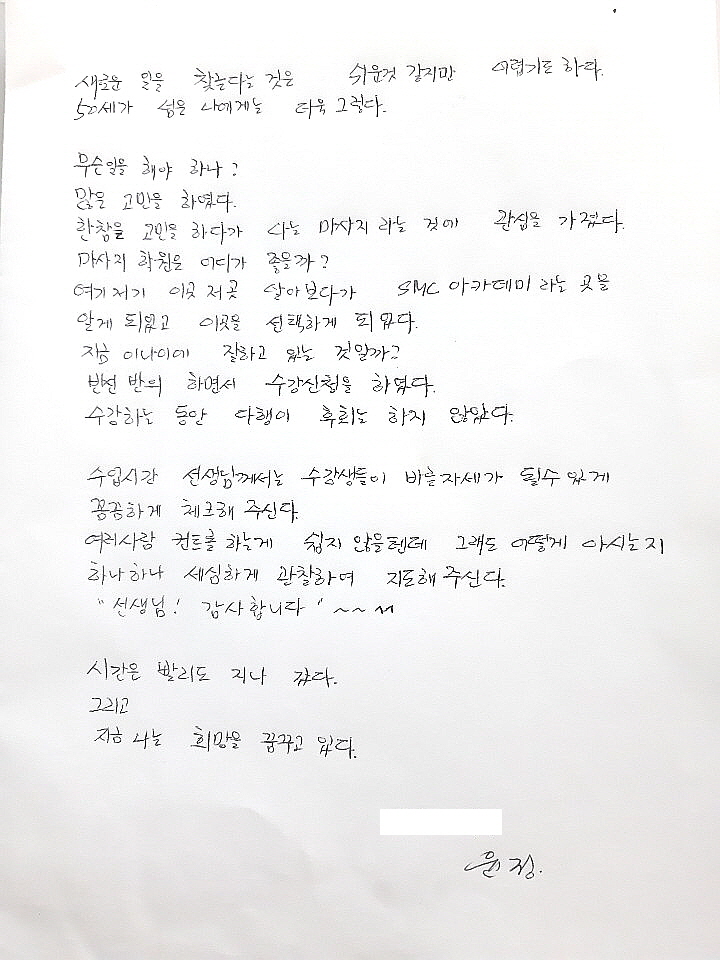 새로운 일을 찾는다는 것은 쉬운것 같지만 어렵기도 하다.
50세가 넘은 나에게는 더욱 그렇다.
무슨일을 해야 하나?
많은 고민을 하였다.
한참을 고민을 하다가 나는 마사지 라는 것에 관심을 가졌다.
마사지 학원은 어디가 좋을까?
여기저기 이곳 저곳 알아보다가 SMC 아카데미 라는 곳을
알게 되었고 이곳을 선택하게 되었다.
지금 이나이에 잘하고 있는 것일까?
반신 반의 하면서 수강신청을 하였다.
수강하는 동안 다행이 후회는 하지 않았다.
수업시간 선생님께서는 수강생들이 바른자세가 될수 있게
꼼꼼하게 체크해 주신다.
여러사람 컨트롤 하는게 쉽지 않을텐데 그래도 어떻게 아시는지
하나하나 세심하게 관찰하여 지도해 주신다.
"선생님! 감사합니다" ~~^^
시간은 빨리도 지나 갔다.
그리고
지금 나는 희망을 꿈꾸고 있다.
윤정.